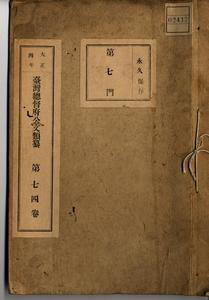 永久保存
第七門
大正
四年
臺灣總督府公文類纂
第七四卷